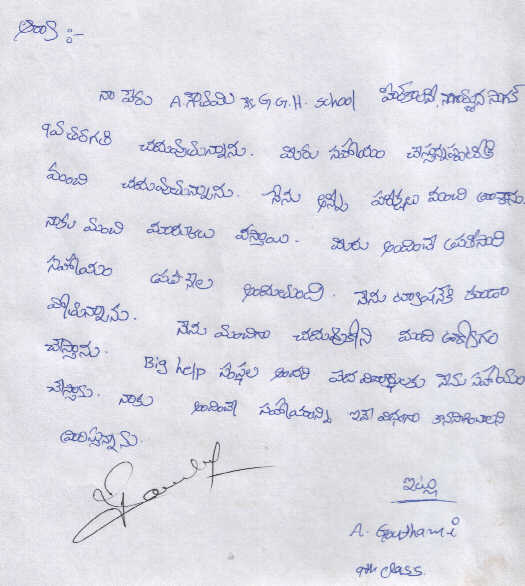 ఆర్యా :-
నా పేరు A. గౌతమి నేను G.G.H. school హిల్ కాలనీ, నాగార్జున సాగర్
9వ తరగతి చదువుతున్నాను. మీరు సహాయం చేస్తున్నందుకు
మంచి చదువుతున్నాను. నేను అన్ని పరీక్షలు మంచి రాశాను
నాకు మంచి మార్కులు వస్తాయి. మీరు అందించే
సహాయం ప్రతి నెల అందుతుంది. నేను ట్యూషన్‌కి కూడా
పోతున్నాను. నేను మంచిగా చదువుకొని మంచి ఉద్యోగం
చేస్తాను. Big help సంస్థల అందరి పేద విద్యార్థులకు నేను సహాయం
చేస్తాను. నాకు అందించే సహాయాన్ని ఇదే విధంగా కొనసాగించాలని
కోరుతున్నాను.
ఇట్లు
A. Gouthami
9th class.